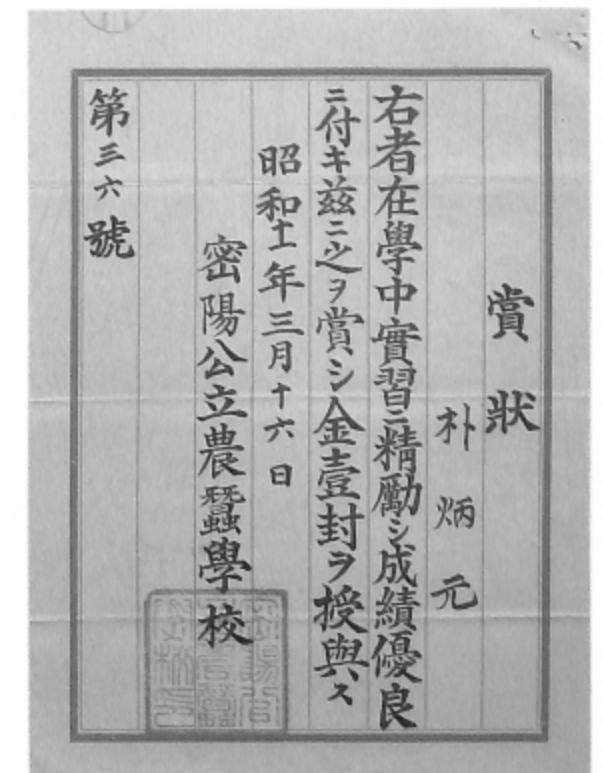 賞狀
朴炳元
右者在學中實習ニ精勵シ成績優良
ニ付キ茲ニ之ヲ賞シ金壹封ヲ授與ス
昭和十一年三月十六日
密陽公立農蠶學校
第三六號